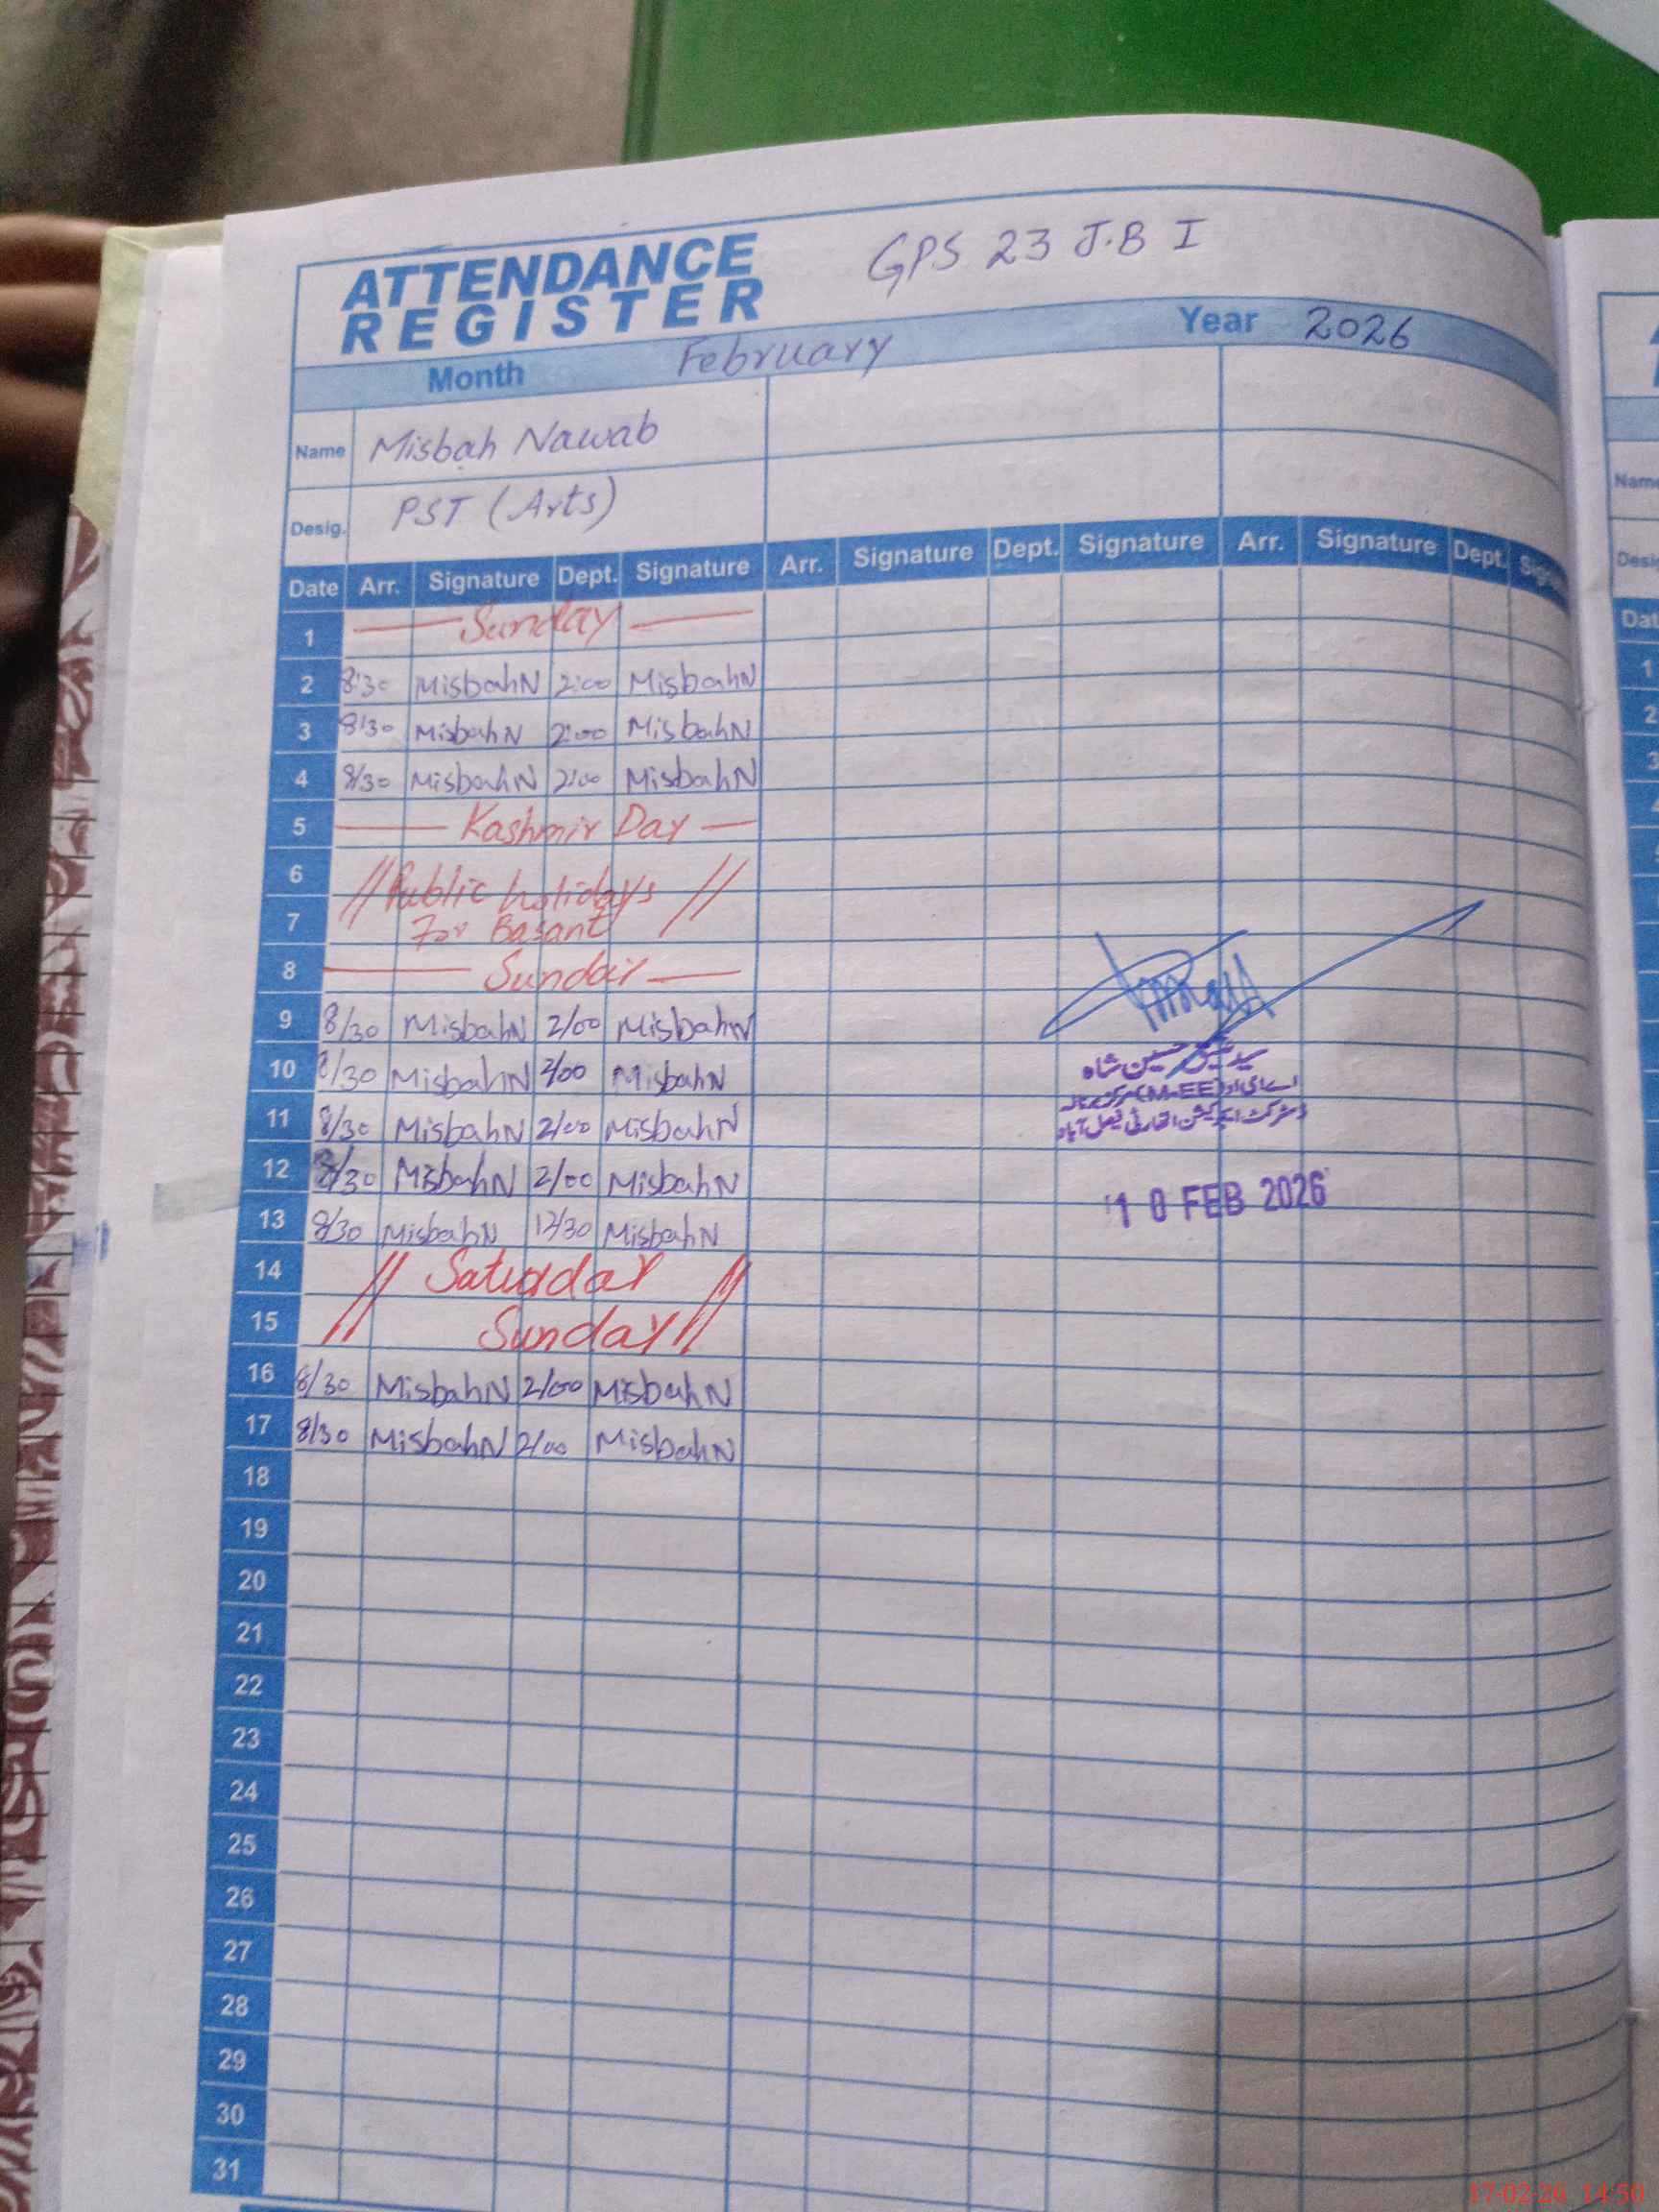 GPS 23 J.B I
ATTENDANCE
REGISTER
Month February Year 2026
Name Misbah Nawab
Desig. PST (Arts)
Date Arr. Signature Dept. Signature Arr. Signature Dept. Signature Arr. Signature Dept.
1 Sunday
2 8:30 MisbahN 2:00 MisbahN
3 8:30 MisbahN 2:00 MisbahN
4 8/30 MisbahN 2:00 MisbahN
5 Kashmir Day
6 Public holidays
7 For Basant
8 Sunday
9 8/30 MisbahN 2/00 MisbahN
10 8/30 MisbahN 2/00 MisbahN
11 8/30 MisbahN 2/00 MisbahN
12 8/30 MisbahN 2/00 MisbahN
13 8/30 MisbahN 12/30 MisbahN
14 Saturday
15 Sunday
16 8/30 MisbahN 2/00 MisbahN
17 8/30 MisbahN 2/00 MisbahN
18
19
20
21
22
23
24
25
26
27
28
29
30
31
سید حسین شاہ
اے ای او (M-EE) مرکز
ڈسٹرکٹ ایجوکیشن اتھارٹی فیصل آباد
10 FEB 2026
Name
Date
1
2
3
17-02-26 14:50